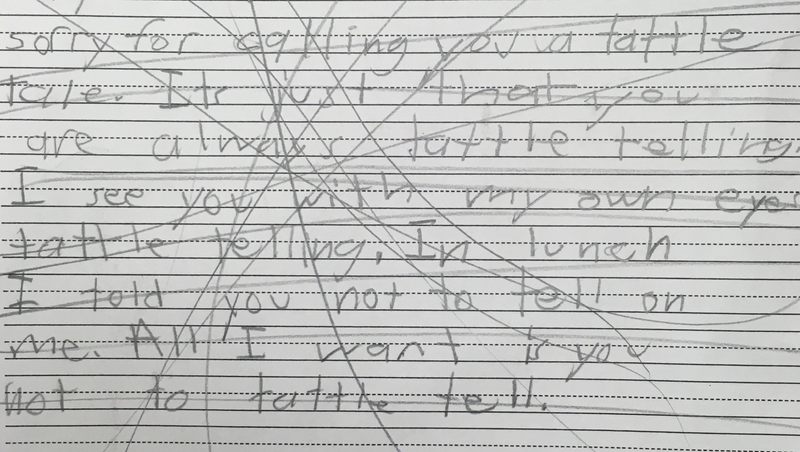 sorry for callling you a tattle
tale. Its just that you
are always tattle telling.
I see you with my own eyes
tattle telling. In lunch
I told you not to tell on
me. All I want is you
not to tattle tell.